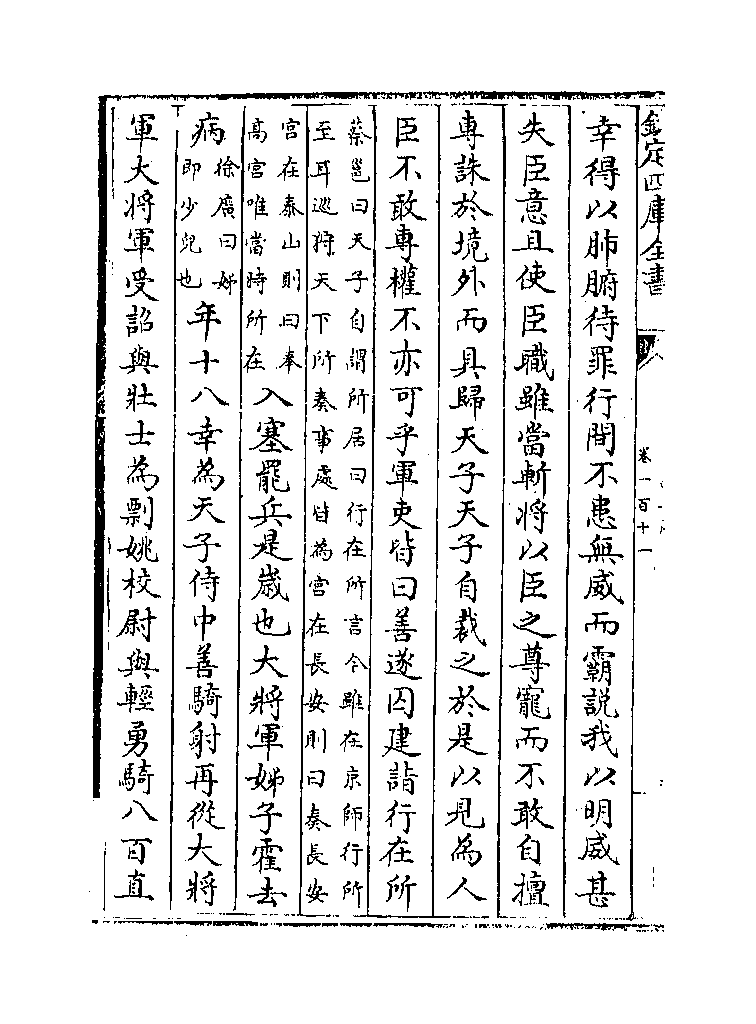 欽定四庫全書
卷一百十一
幸得以肺腑待罪行間不患無威而霸説我以明威甚
失臣意且使臣職雖當斬將以臣之尊寵而不敢自擅
專誅於境外而具歸天子天子自裁之於是以見為人
臣不敢專權不亦可乎軍吏皆曰善遂囚建詣行在所
蔡邕曰天子自謂所居曰行在所言今雖在京師行所
至耳巡狩天下所奏事處皆為宫在長安則曰奏長安
宫在泰山則曰奉
高宫唯當時所在
入塞罷兵是嵗也大將軍姊子霍去
病
徐廣曰姊
即少兒也
年十八幸為天子侍中善騎射再從大將
軍大將軍受詔與壯士為剽姚校尉與輕勇騎八百直